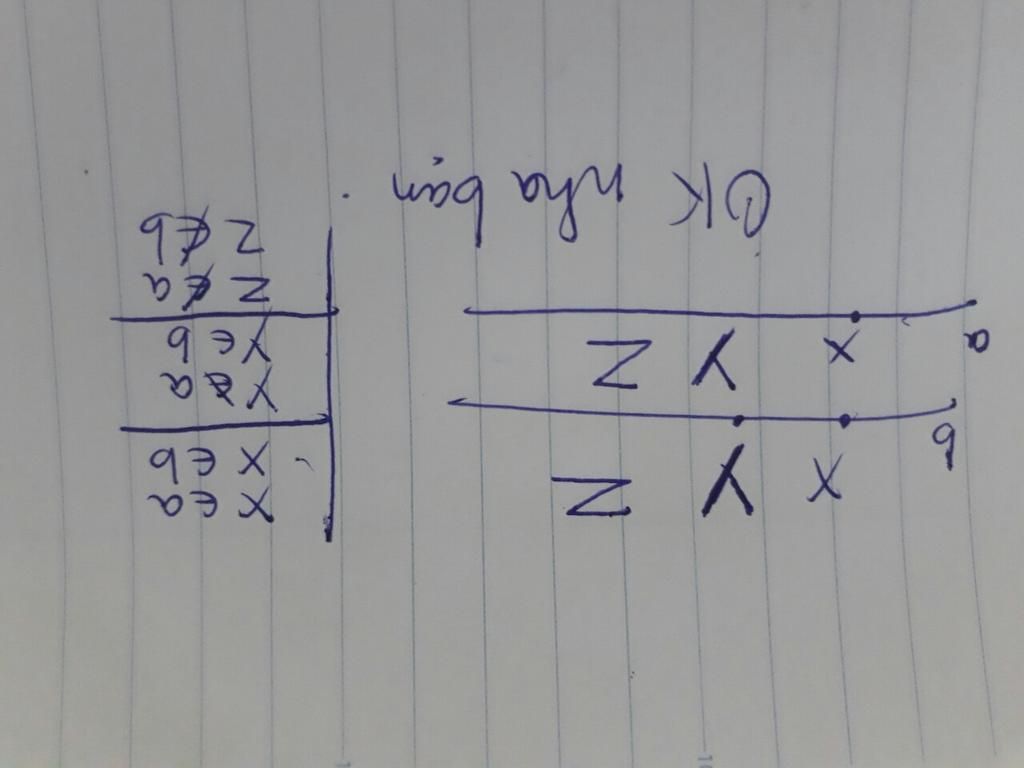 X Y Z
b
X Y Z
a
X ∈ a
X ∈ b
Y ∉ a
Y ∈ b
Z ∉ a
Z ∉ b
OK nha bạn.